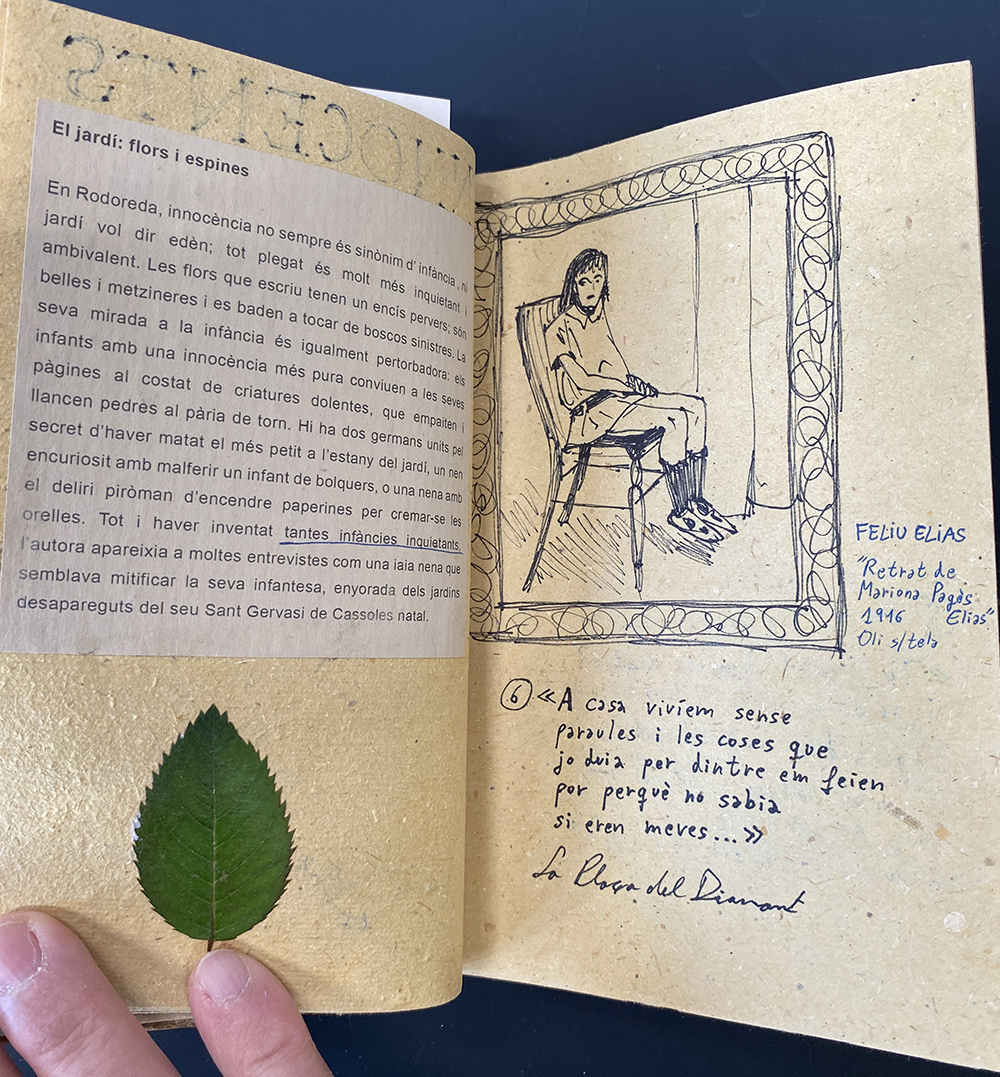 INNOCENTS
El jardí: flors i espines
En Rodoreda, innocència no sempre és sinònim d' infància , ni
jardí vol dir edèn; tot plegat és molt més inquietant i
ambivalent. Les flors que escriu tenen un encís pervers; són
belles i metzineres i es baden a tocar de boscos sinistres. La
seva mirada a la infància és igualment pertorbadora: els
infants amb una innocència més pura conviuen a les seves
pàgines al costat de criatures dolentes, que empaiten i
llancen pedres al pària de torn. Hi ha dos germans units pel
secret d'haver matat el més petit a l'estany del jardí, un nen
encuriosit amb malferir un infant de bolquers, o una nena amb
el deliri piròman d'encendre paperines per cremar-se les
orelles. Tot i haver inventat tantes infàncies inquietants,
l'autora apareixia a moltes entrevistes com una iaia nena que
semblava mitificar la seva infantesa, enyorada dels jardins
desapareguts del seu Sant Gervasi de Cassoles natal.
FELIU ELIAS
"Retrat de
Mariona Pagès
1916 Elias"
Oli s/tela
6 «A casa vivíem sense
paraules i les coses que
jo duia per dintre em feien
por perquè no sabia
si eren meves...»
La Plaça del Diamant